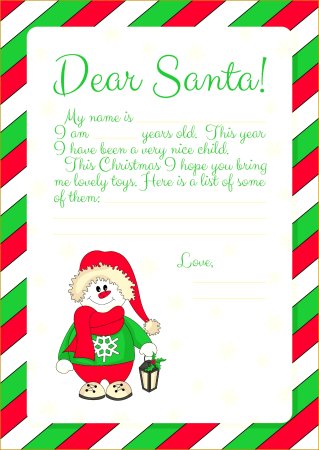 Dear Santa!
My name is
I am ________ years old. This year
I have been a very nice child.
This Christmas I hope you bring
me lovely toys. Here is a list of some
of them:
Love,